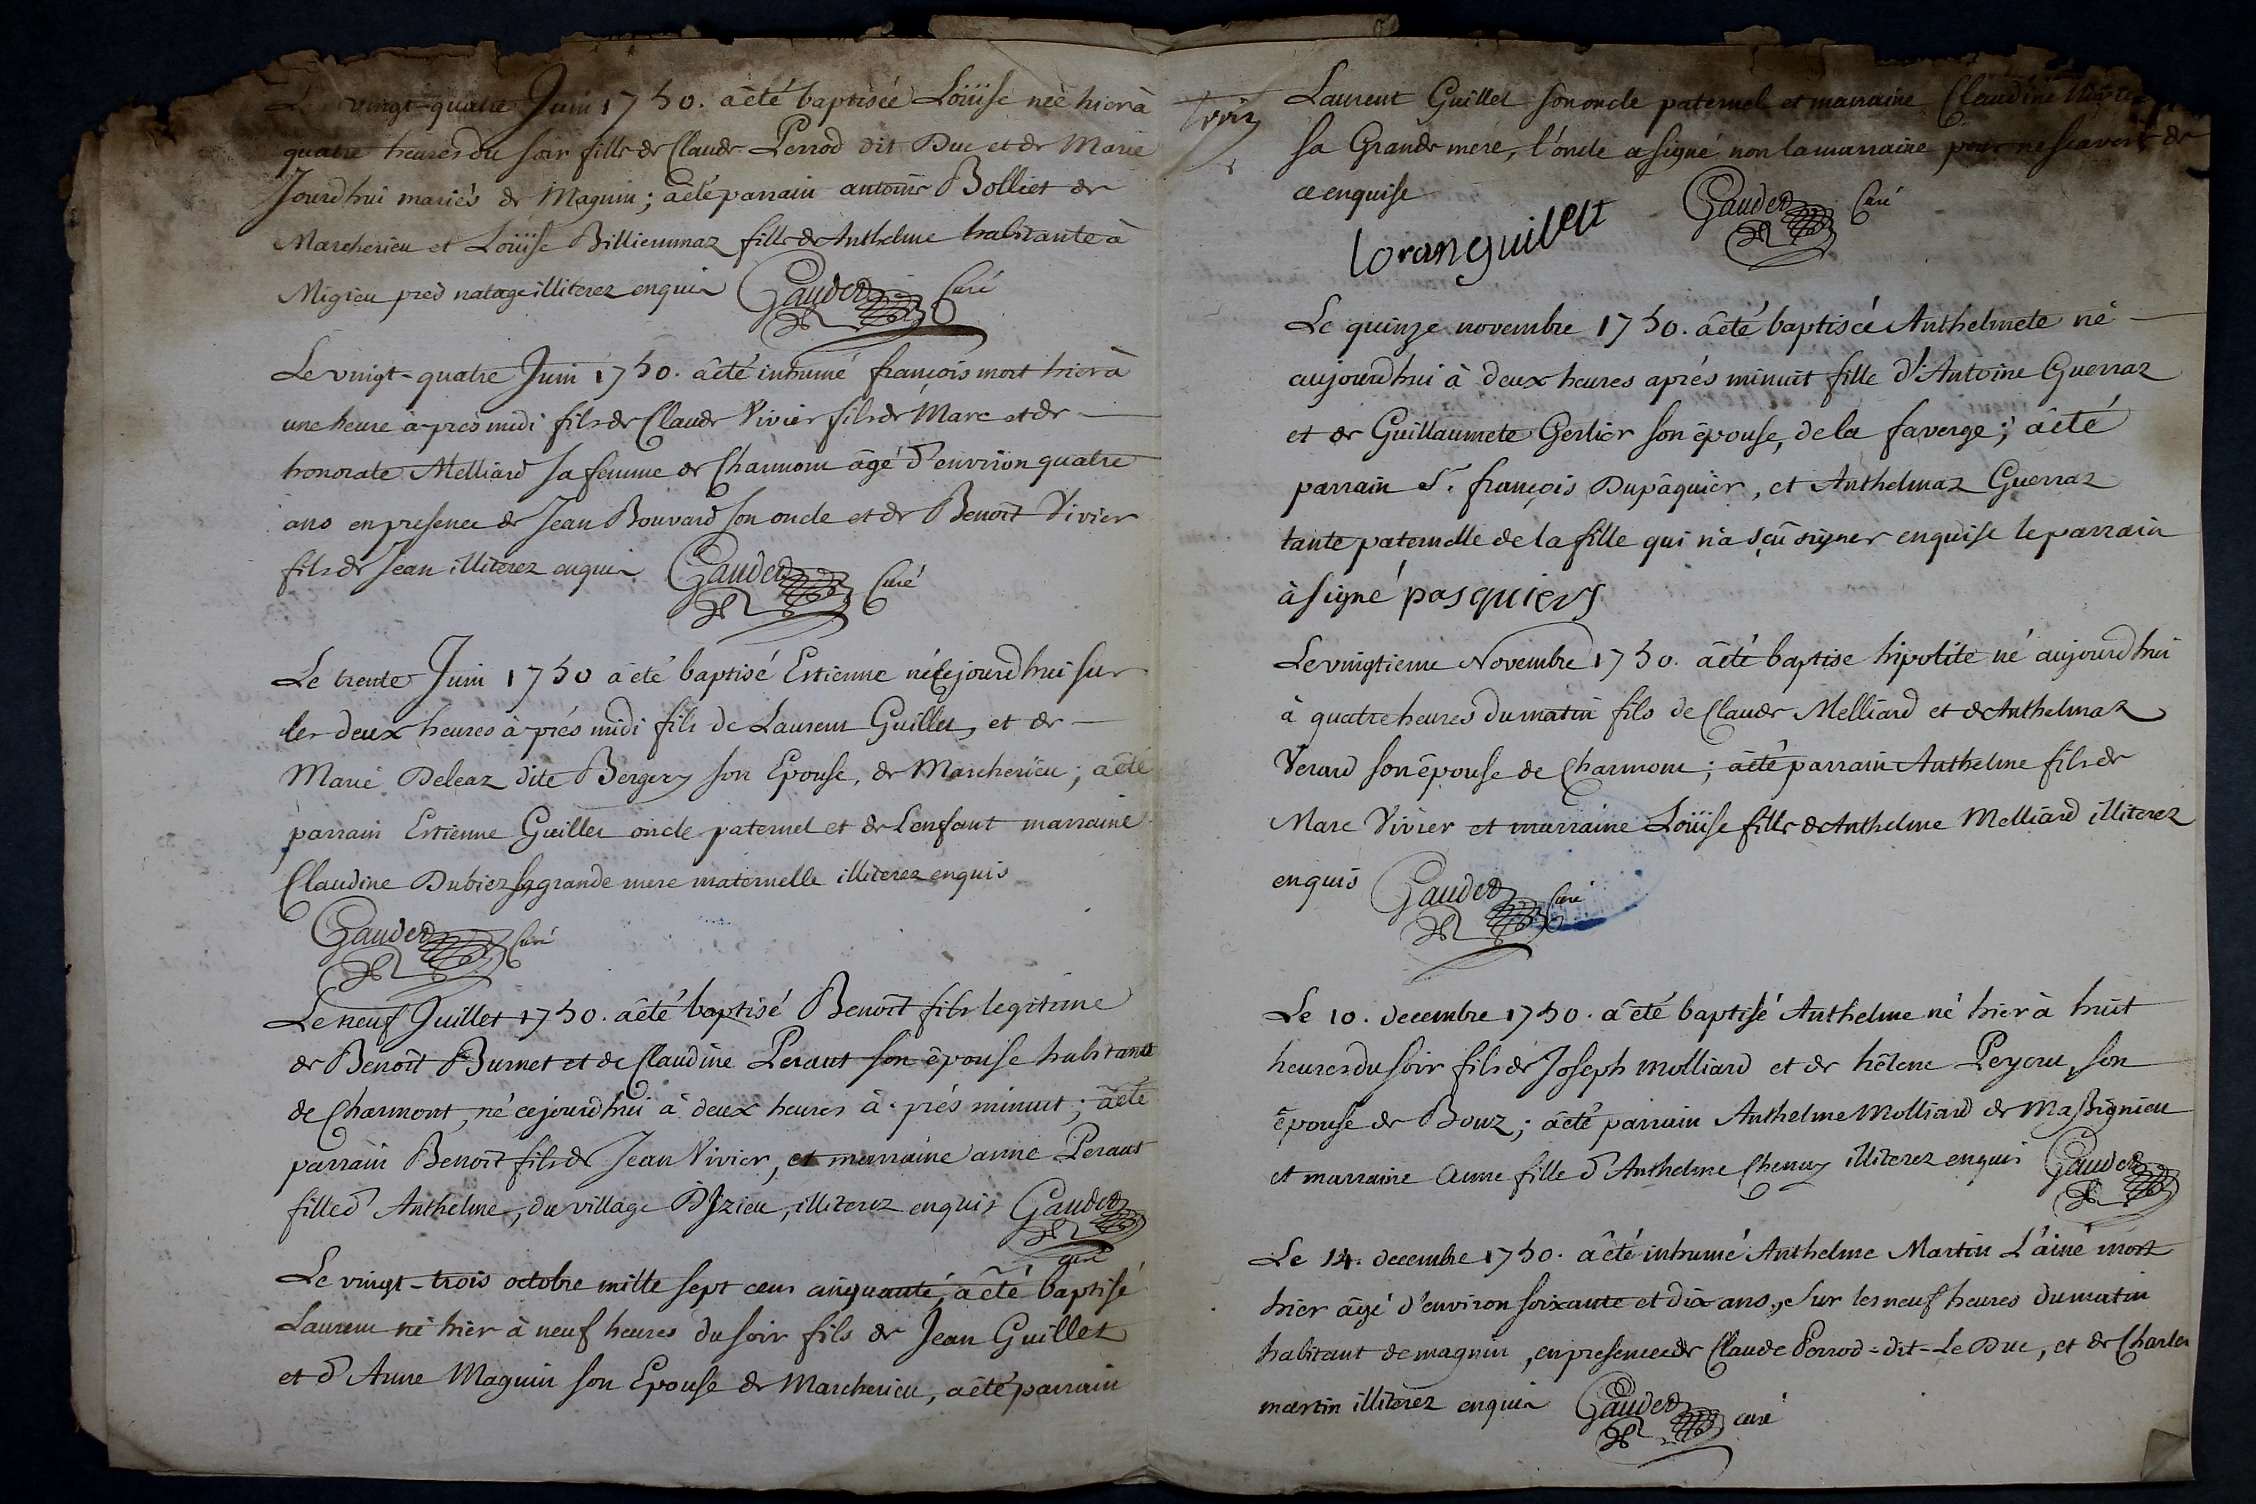 Le vingt-quatre Juin 1750. a été baptisée Loüise née hier à
quatre heures du soir fille de Claude Perrod dit Duc et de Marie
Jourdhui mariés de Magnin; a été parrain antoine Bolliet de
Marcherieu et Loüise Billiemmaz fille de Anthelme habitante à
Migieu pres natage illiterez enquis Gaudet Curé
Le vingt-quatre Juin 1750. a été inhumé françois mort hier à
une heure à-pres midi fils de Claude Vivier fils de Marc et de
honorate Melliard sa femme de Charmont âgé d'environ quatre
ans en presence de Jean Bouvard son oncle et de Benoît Vivier
fils de Jean illiterez enquis Gaudet Curé
Le trente Juin 1750 a été baptisé Estienne né cejourdhui sur
les deux heures à-prés midi fils de Laurent Guillet, et de
Marie Deleaz dite Berger son Epouse, de Marcherieu; a été
parrain Estienne Guillet oncle paternel et de Lenfant marraine
Claudine Dubiez sa grande mere maternelle illiterez enquis
Gaudet Curé
Le neuf Juillet 1750. a été baptisé Benoît fils legitime
de Benoît Burnet et de Claudine Peraut son épouse habitant
de Charmont, né cejourdhui à deux heures à-prés minuit; a été
parrain Benoît fils de Jean Vivier, et marraine anne Peraut
fille d'Anthelme, du village D'Izieu, illiterez enquis Gaudet
curé
Le vingt-trois octobre mille sept cens cinquante, a été baptisé
Laurent né hier à neuf heures du soir fils de Jean Guillet
et d'Anne Magnin son Epouse de Marcherieu, a été parrain
Laurent Guillet son oncle paternel et marraine Claudine
sa Grande mere, l'oncle a signé non la marraine pour ne scavoir de
ce enquise Gaudet Curé
loran guillett
Le quinze novembre 1750. a été baptisée Anthelmete né
aujourdhui à deux heures aprés minuit fille d'Antoine Guerraz
et de Guillaumete Gerlier son épouse, de la faverge; a été
parrain S.r françois Dupâquier, et Anthelmaz Guerraz
tante paternelle de la fille qui n'a sçû signer enquise le parrain
à signé pasquiers
Le vingtieme Novembre 1750. a été baptise hipolite né aujourdhui
à quatre heures du matin fils de Claude Melliard et de Anthelmaz
Verard son épouse de Charmont; a été parrain Anthelme fils de
Marc Vivier et marraine Loüise fille de Anthelme Melliard illiterez
enquis Gaudet Curé
Le 10. decembre 1750. a été baptisé Anthelme né hier à huit
heures du soir fils de Joseph Molliard et de hélene Peycru son
épouse de Bouz; a été parrain Anthelme Molliard de Massignieu
et marraine Anne fille d'Anthelme Chenuy illiterez enquis Gaudet
Le 14. decembre 1750. a été inhumé Anthelme Martin L'ainé mort
hier âgé d'environ soixante et dix ans, sur les neuf heures du matin
habitant de magnin, en presence de Claude Perrod=dit-Le Duc, et de Charles
martin illiterez enquis Gaudet curé